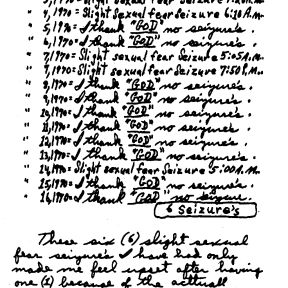 " 4, 1970= Slight sexual fear Seizure 6:10 A.M.
" 5, 1970= I thank "GOD" no seizure's.
" 6, 1970= I thank "GOD" no seizure's.
" 7, 1970= Slight sexual fear Seizure 5:05 A.M.
" 8, 1970= Slight sexual fear Seizure 7:50 P.M.
" 9, 1970= I thank "GOD" no seizure's.
" 10, 1970= I thank "GOD" no seizure's.
" 11, 1970= I thank "GOD" no seizure's.
" 12, 1970= I thank "GOD" no seizure's.
" 13, 1970= I thank "GOD" no seizure's.
" 14, 1970= Slight sexual fear Seizure 5:00 A.M.
" 15, 1970= I thank "GOD" no seizure's.
" 16, 1970= I thank "GOD" no seizure's.
6 Seizure's
These six (6) slight sexual
fear seizure's I have had only
made me feel upset after having
one (1) because of the actuall